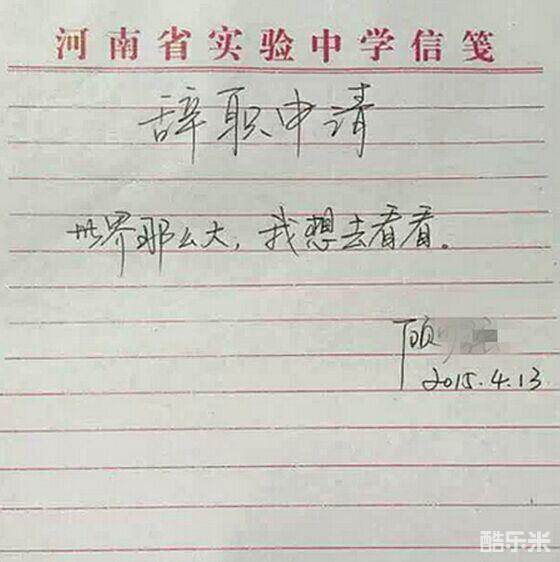 河南省实验中学信笺
辞职申请
世界那么大，我想去看看。
顾
2015.4.13
酷乐米